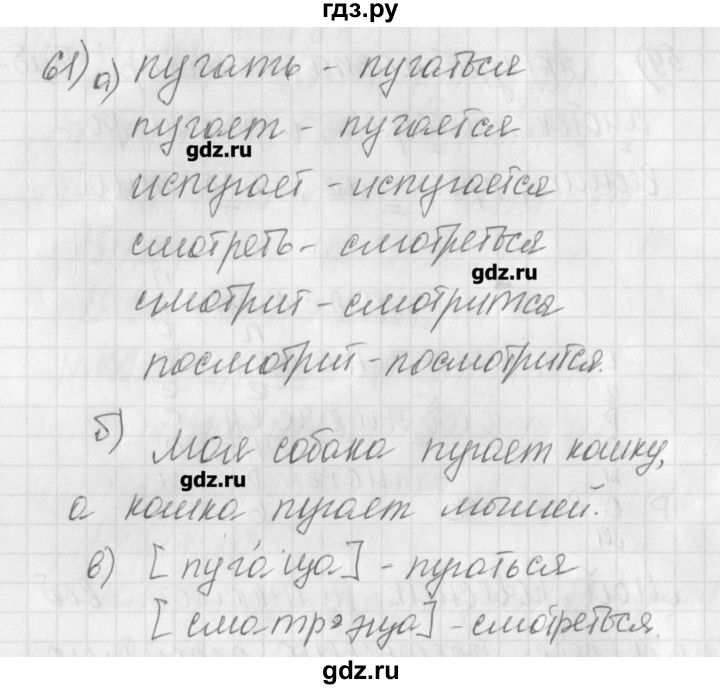 гдз.ру
61) а) пугать - пугаться
пугает - пугается
gdz.ru
испугает - испугается
смотреть - смотреться
gdz.ru
смотрит - смотрится
посмотрит - посмотрится.
б) Моя собака пугает кошку,
gdz.ru
а кошка пугает мышей.
в) [пуга́ца] - пугаться
[сматрэца] - смотреться.
gdz.ru